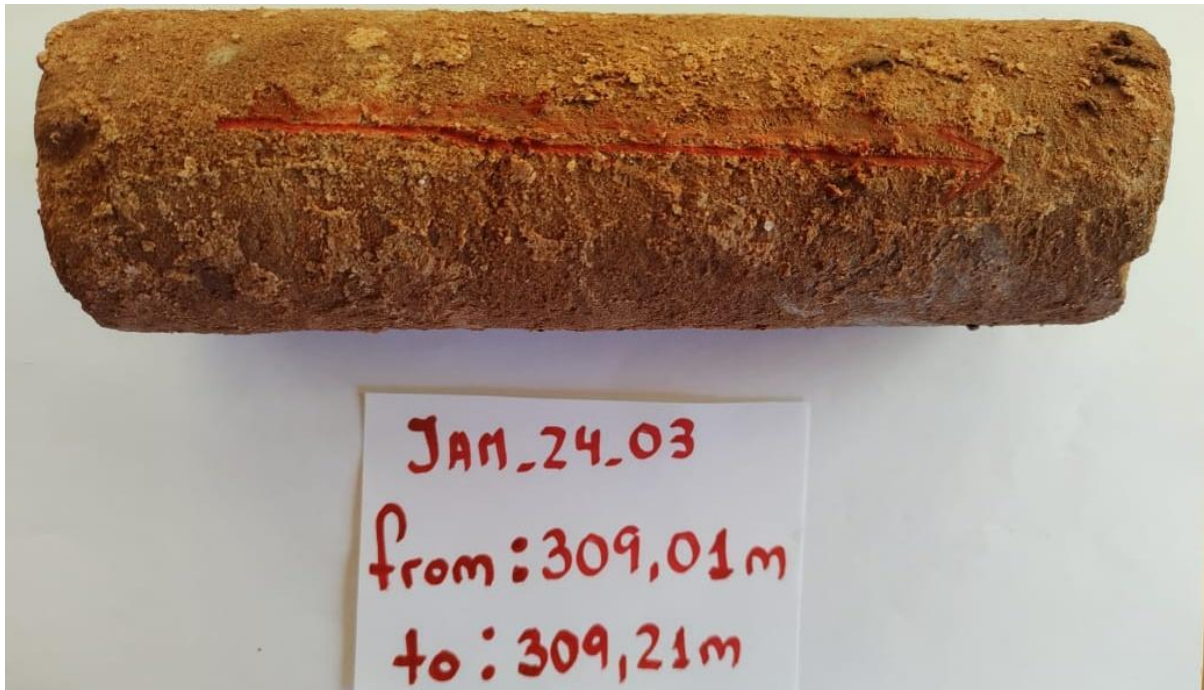 JAM_24_03
from: 309,01m
to: 309,21m